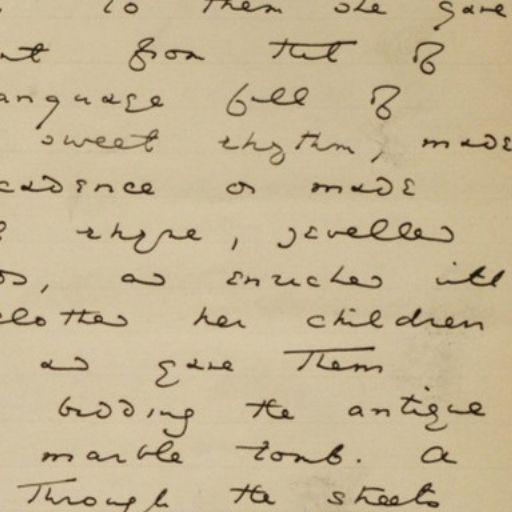 to them she gave
from that of
anguage full of
sweet rhythm, made
cadence or made
rhyme, jewelled
, and enriched with
clothed her children
and gave them
bidding the antique
marble tomb. a
Through the streets